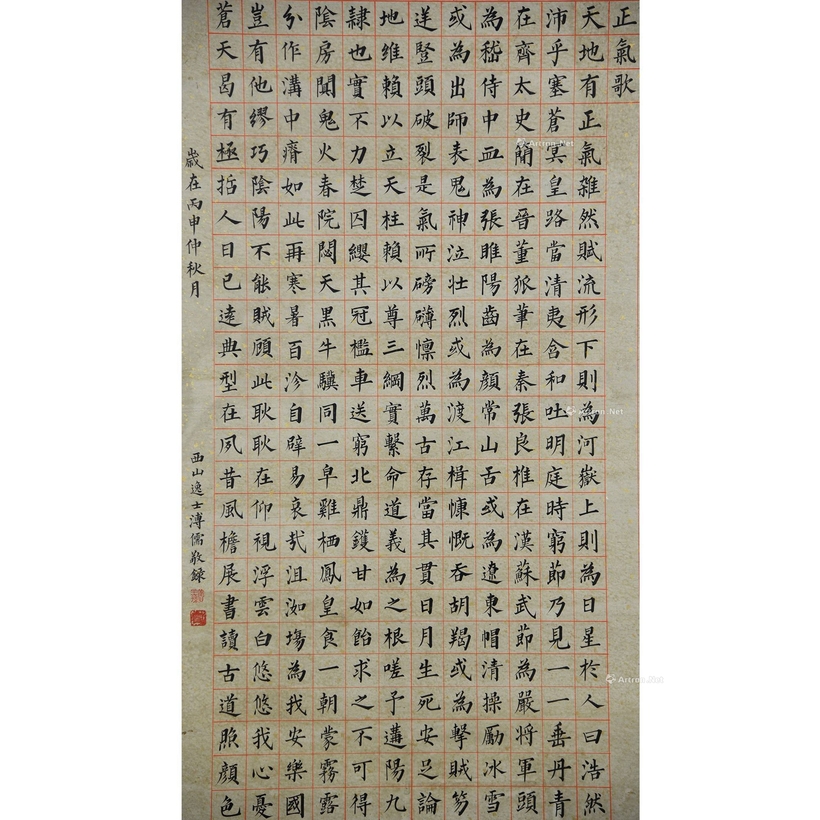 正氣歌
天地有正氣雜然賦流形下則為河嶽上則為日星於人曰浩然
沛乎塞蒼冥皇路當清夷含和吐明庭時窮節乃見一一垂丹青
在齊太史簡在晉董狐筆在秦張良椎在漢蘇武節為嚴將軍頭
為嵇侍中血為張睢陽齒為顏常山舌或為遼東帽清操勵冰雪
或為出師表鬼神泣壯烈或為渡江楫慷慨吞胡羯或為擊賊笏
逆豎頭破裂是氣所磅礴懍烈萬古存當其貫日月生死安足論
地維賴以立天柱賴以尊三綱實繫命道義為之根嗟予遘陽九
隸也實不力楚囚纓其冠檻車送窮北鼎鑊甘如飴求之不可得
陰房闃鬼火春院閟天黑牛驥同一皁雞栖鳳皇食一朝蒙霧露
分作溝中瘠如此再寒暑百沴自辟易哀哉沮洳場為我安樂國
豈有他繆巧陰陽不能賊顧此耿耿在仰視浮雲白悠悠我心憂
蒼天曷有極哲人日已遠典型在夙昔風檐展書讀古道照顏色
歲在丙申仲秋月
西山逸士溥儒敬錄
Artron.Net
Artron.Net
Artron.Net